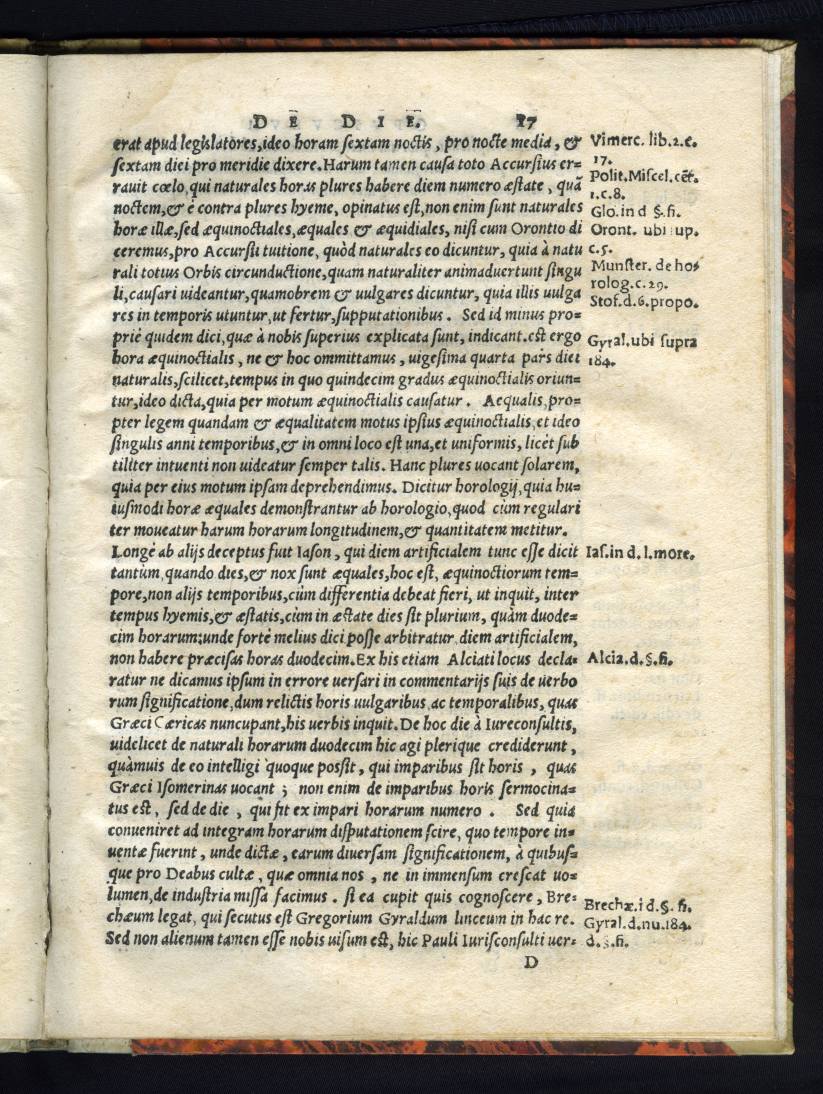 DE DIE. 17
erat apud legislatores, ideo horam sextam noctis, pro nocte media, &
sextam diei pro meridie dixere. Harum tamen causa toto Accursius er=
rauit cœlo, qui naturales horas plures habere diem numero æstate, quã
noctem, & è contra plures hyeme, opinatus est, non enim sunt naturales
horæ illæ, sed æquinoctiales, æquales & æquidiales, nisi cum Orontio di
ceremus, pro Accursii tuitione, quòd naturales eo dicuntur, quia à natu
rali totius Orbis circunductione, quam naturaliter animaduertunt singu
li, causari uideantur, quamobrem & uulgares dicuntur, quia illis uulga
res in temporis utuntur, ut fertur, supputationibus. Sed id minus pro=
priè quidem dici, quæ à nobis superius explicata sunt, indicant. est ergo
hora æquinoctialis, ne & hoc ommittamus, uigesima quarta pars diei
naturalis, scilicet, tempus in quo quindecim gradus æquinoctialis oriun=
tur, ideo dicta, quia per motum æquinoctialis causatur. Aequalis, pro=
pter legem quandam & æqualitatem motus ipsius æquinoctialis, et ideo
singulis anni temporibus, & in omni loco est una, et uniformis, licèt sub
tiliter intuenti non uideatur semper talis. Hanc plures uocant solarem,
quia per eius motum ipsam deprehendimus. Dicitur horologij, quia hu=
iusmodi horæ æquales demonstrantur ab horologio, quod cùm regulari
ter moueatur harum horarum longitudinem, & quantitatem metitur.
Longè ab alijs deceptus fuit Iason, qui diem artificialem tunc esse dicit
tantùm, quando dies, & nox sunt æquales, hoc est, æquinoctiorum tem=
pore, non alijs temporibus, cùm differentia debeat fieri, ut inquit, inter
tempus hyemis, & æstatis, cùm in æstate dies sit plurium, quàm duode=
cim horarum: unde fortè melius dici posse arbitratur, diem artificialem,
non habere præcisas horas duodecim. Ex his etiam Alciati locus decla=
ratur ne dicamus ipsum in errore uersari in commentarijs suis de uerbo
rum significatione, dum relictis horis uulgaribus ac temporalibus, quas
Græci Cæricas nuncupant, his uerbis inquit. De hoc die à Iureconsultis,
uidelicet de naturali horarum duodecim hic agi plerique crediderunt,
quàmuis de eo intelligi quoque possit, qui imparibus sit horis, quas
Græci Isomerinas uocant; non enim de imparibus horis sermocina=
tus est, sed de die, qui fit ex impari horarum numero. Sed quia
conueniret ad integram horarum disputationem scire, quo tempore in=
uentæ fuerint, unde dictæ, earum diuersam significationem, à quibus=
que pro Deabus cultæ, quæ omnia nos, ne in immensum crescat uo=
lumen, de industria missa facimus. si ea cupit quis cognoscere, Bre=
chæum legat, qui secutus est Gregorium Gyraldum linceum in hac re.
Sed non alienum tamen esse nobis uisum est, hic Pauli Iurisconsulti uer=
D
Vimerc. lib.2.c.
17.
Polit. Miscel. cẽt.
1.c.8.
Glo. in d §. fi.
Oront. ubi sup.
c.5.
Munster. de ho=
rolog.c.29.
Stof.d.6.propo.
Gyral. ubi supra
184.
Ias. in d. l. more.
Alcia.d.§.fi.
Brechæ. i d.§. fi.
Gyral.d.nu.184.
d.§.fi.